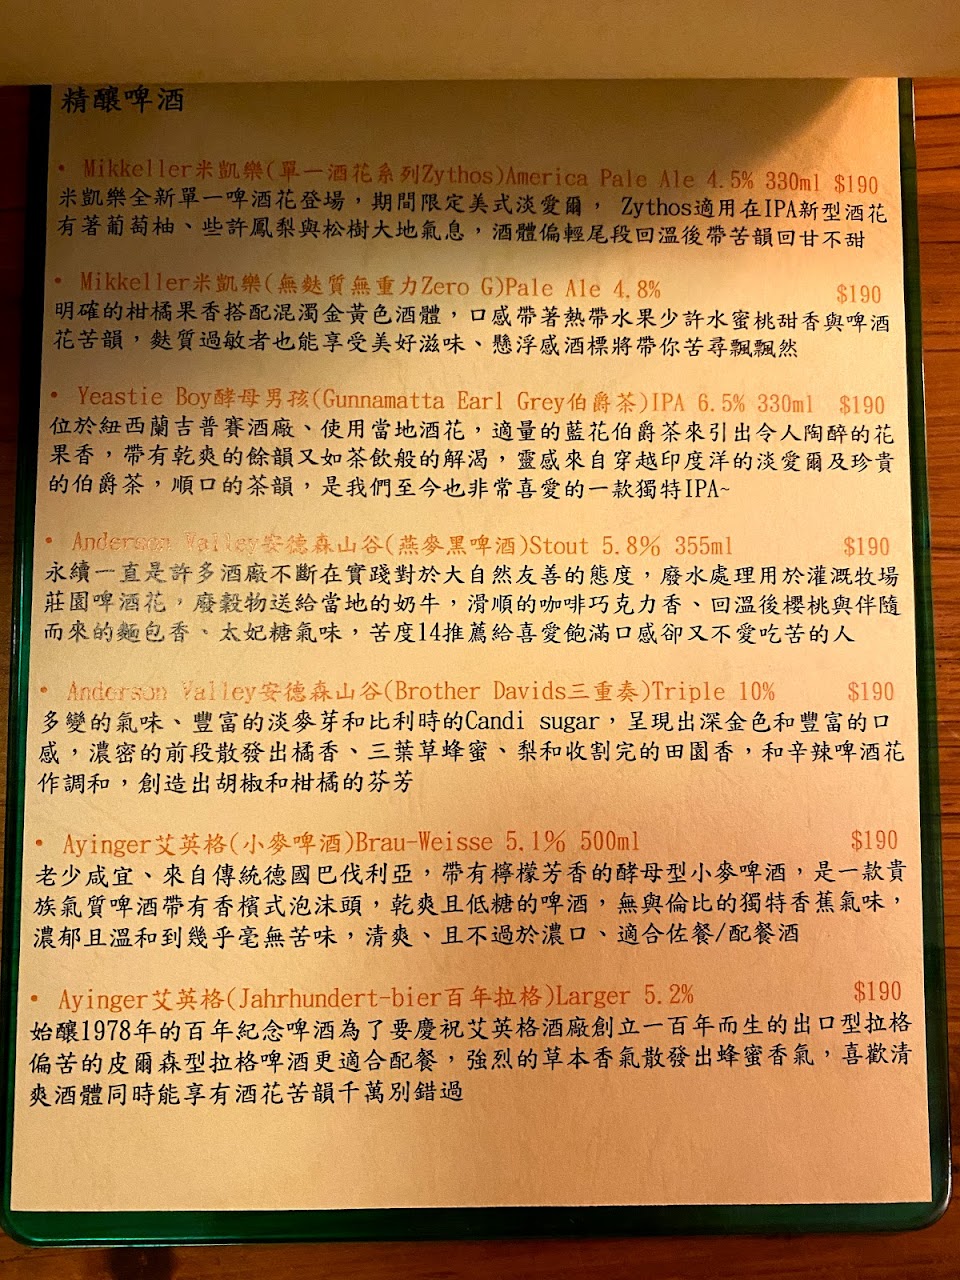 精釀啤酒
• Mikkeller米凱樂(單一酒花系列Zythos)America Pale Ale 4.5% 330ml $190
米凱樂全新單一啤酒花登場，期間限定美式淡愛爾， Zythos適用在IPA新型酒花
有著葡萄柚、些許鳳梨與松樹大地氣息，酒體偏輕尾段回溫後帶苦韻回甘不甜
• Mikkeller米凱樂(無麩質無重力Zero G)Pale Ale 4.8% $190
明確的柑橘果香搭配混濁金黃色酒體，口感帶著熱帶水果少許水蜜桃甜香與啤酒
花苦韻，麩質過敏者也能享受美好滋味、懸浮感酒標將帶你苦尋飄飄然
• Yeastie Boy酵母男孩(Gunnamatta Earl Grey伯爵茶)IPA 6.5% 330ml $190
位於紐西蘭吉普賽酒廠、使用當地酒花，適量的藍花伯爵茶來引出令人陶醉的花
果香，帶有乾爽的餘韻又如茶飲般的解渴，靈感來自穿越印度洋的淡愛爾及珍貴
的伯爵茶，順口的茶韻，是我們至今也非常喜愛的一款獨特IPA~
• Anderson Valley安德森山谷(燕麥黑啤酒)Stout 5.8% 355ml $190
永續一直是許多酒廠不斷在實踐對於大自然友善的態度，廢水處理用於灌溉牧場
莊園啤酒花，廢穀物送給當地的奶牛，滑順的咖啡巧克力香、回溫後櫻桃與伴隨
而來的麵包香、太妃糖氣味，苦度14推薦給喜愛飽滿口感卻又不愛吃苦的人
• Anderson Valley安德森山谷(Brother Davids三重奏)Triple 10% $190
多變的氣味、豐富的淡麥芽和比利時的Candi sugar，呈現出深金色和豐富的口
感，濃密的前段散發出橘香、三葉草蜂蜜、梨和收割完的田園香，和辛辣啤酒花
作調和，創造出胡椒和柑橘的芬芳
• Ayinger艾英格(小麥啤酒)Brau-Weisse 5.1% 500ml $190
老少咸宜、來自傳統德國巴伐利亞，帶有檸檬芳香的酵母型小麥啤酒，是一款貴
族氣質啤酒帶有香檳式泡沫頭，乾爽且低糖的啤酒，無與倫比的獨特香蕉氣味，
濃郁且溫和到幾乎毫無苦味，清爽、且不過於濃口、適合佐餐/配餐酒
• Ayinger艾英格(Jahrhundert-bier百年拉格)Larger 5.2% $190
始釀1978年的百年紀念啤酒為了要慶祝艾英格酒廠創立一百年而生的出口型拉格
偏苦的皮爾森型拉格啤酒更適合配餐，強烈的草本香氣散發出蜂蜜香氣，喜歡清
爽酒體同時能享有酒花苦韻千萬別錯過